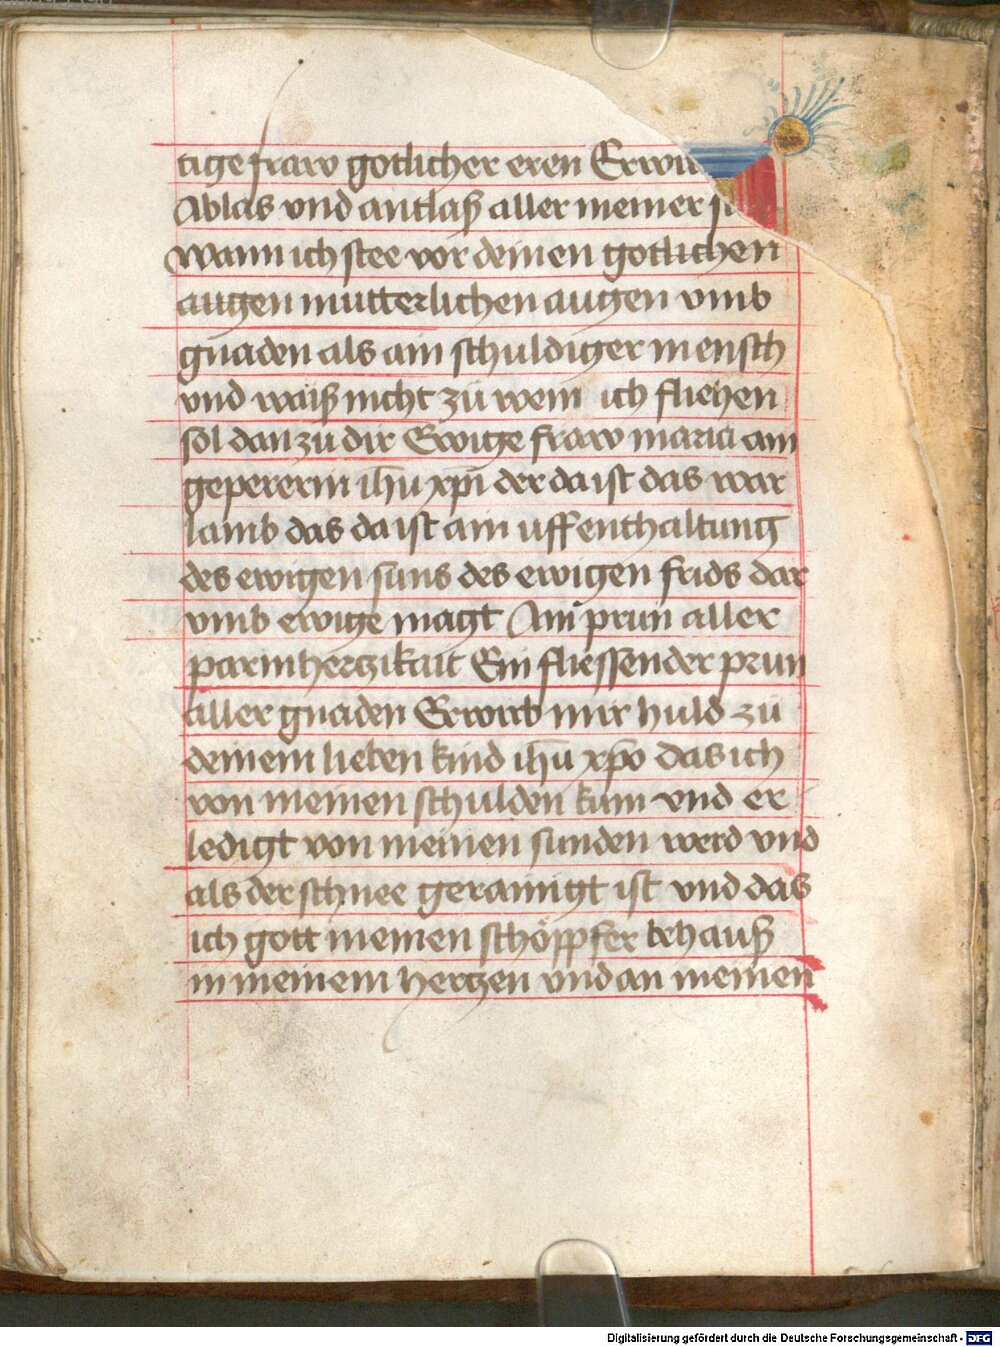 tige fraw gotlicher eren
Ablas vnd antlaß aller meiner
wann ich stee vor deinen gotlichen
augen mutterlichen augen vmb
gnaden als ain schuldiger mensch
vnd waiß nicht zu wem ich fliehen
sol dan zu dir Ewige fraw maria ain
gepererin ihu xpi der da ist das war
lamb das da ist ain uffenthaltung
des ewigen suns des ewigen frids dar
vmb ewige magt Ain prun aller
parmhertzikait Ein fliessender prun
aller gnaden Erwirb mir huld zu
deinem lieben kind ihu xpo das ich
von meinen schulden kum vnd er
ledigt von meinen sunden werd vnd
als der schnee gerainigt ist vnd das
ich gott meinen schöppfer behauß
in meinem hertzen vnd an meinen
Digitalisierung gefördert durch die Deutsche Forschungsgemeinschaft - DFG